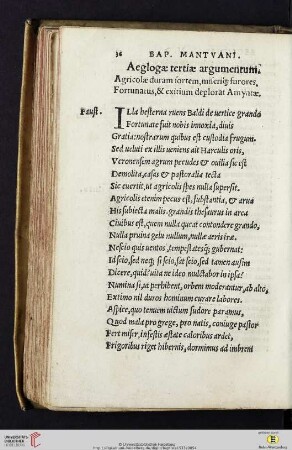 36 BAP. MANTVANI.
Aeglogæ tertiæ argumentum.
Agricolæ duram sortem, miseriq; furores,
Fortunatus, & exitium deplorat Amyntæ.
Faust. ILla hesterna ruens Baldi de vertice grando
Fortunate fuit nobis innoxia, diuis
Gratia: nostrarum quibus est custodia frugum.
Sed ueluti ex illis ueniens ait Harculus oris,
Veronensem agrum pecudes & ouilia sic est
Demolita, casas & pastoralia tecta
Sic euertit, ut agricolis spes nulla supersit.
Agricolis etenim pecus est, substantia, & arua
His subiecta malis. grandis thesaurus in arca
Ciuibus est, quem nulla queat contundere grando,
Nulla pruina gelu nullum, nullæ aeris iræ.
Nescio quis uentos, tempestatesq; gubernat:
Id scio, sed neq; si scio, sat scio, sed tamen ausim
Dicere, quid? uita ne ideo mulctabor in ipsa?
Numina si, ut perhibent, orbem moderantur, ab alto,
Extimo nil duros hominum curare labores.
Aspice, quo tenuem uictum sudore paramus,
Quod mala pro grege, pro natis, coniuge pastor
Fert miser, infestis æstate caloribus ardet,
Frigoribus riget hibernis, dormimus ad imbrem